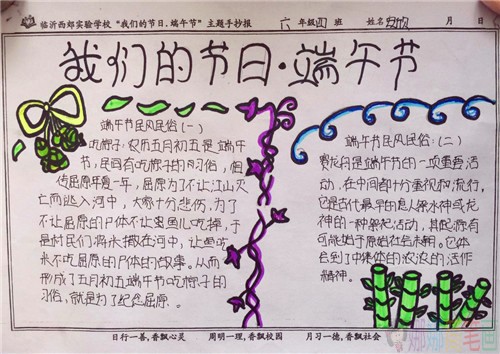 临沂西郊实验学校“我们的节日.端午节”主题手抄报 六 年级 四 班 姓名 月 日
我们的节日·端午节
端午节民风民俗(一)
吃粽子:农历五月初五是端午
节,民间有吃粽子的习俗,相
传屈原年复一年,屈原为了不让江山灭
亡而逃入河中,大家十分悲伤,为了
不让屈原的尸体不让里鱼儿吃掉,于
是村民们将米撒在河中,让鱼吃
米不吃屈原的尸体的故事。从而
形成了五月初五端午节吃粽子的
习俗,就是为了纪念屈原。
端午节民风民俗:(二)
赛龙舟是端午节的一项重要活
动,在中间都十分重视和流行,
它是古代最早的老人祭水神或龙
神的一种祭祀活动,其起源有
可能始于原始社会末期。它体
会到了中集体的浓浓的活作
精神。
日行一善,香飘心灵 周明一理,香飘校园 月习一德,香飘社会